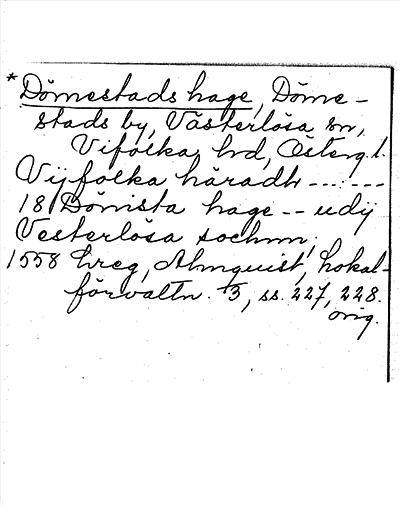 * Dömestads hage, Döme-
stads by, Västerlösa sn,
Vifolka hd, Österg. l.
Vijfolka häradh --- ---
18 Dönista hage -- udij
Vesterlösa sochnn;
1558 hreg, Almquist, Lokal-
förvaltn. 3, ss. 227, 228.
orig.